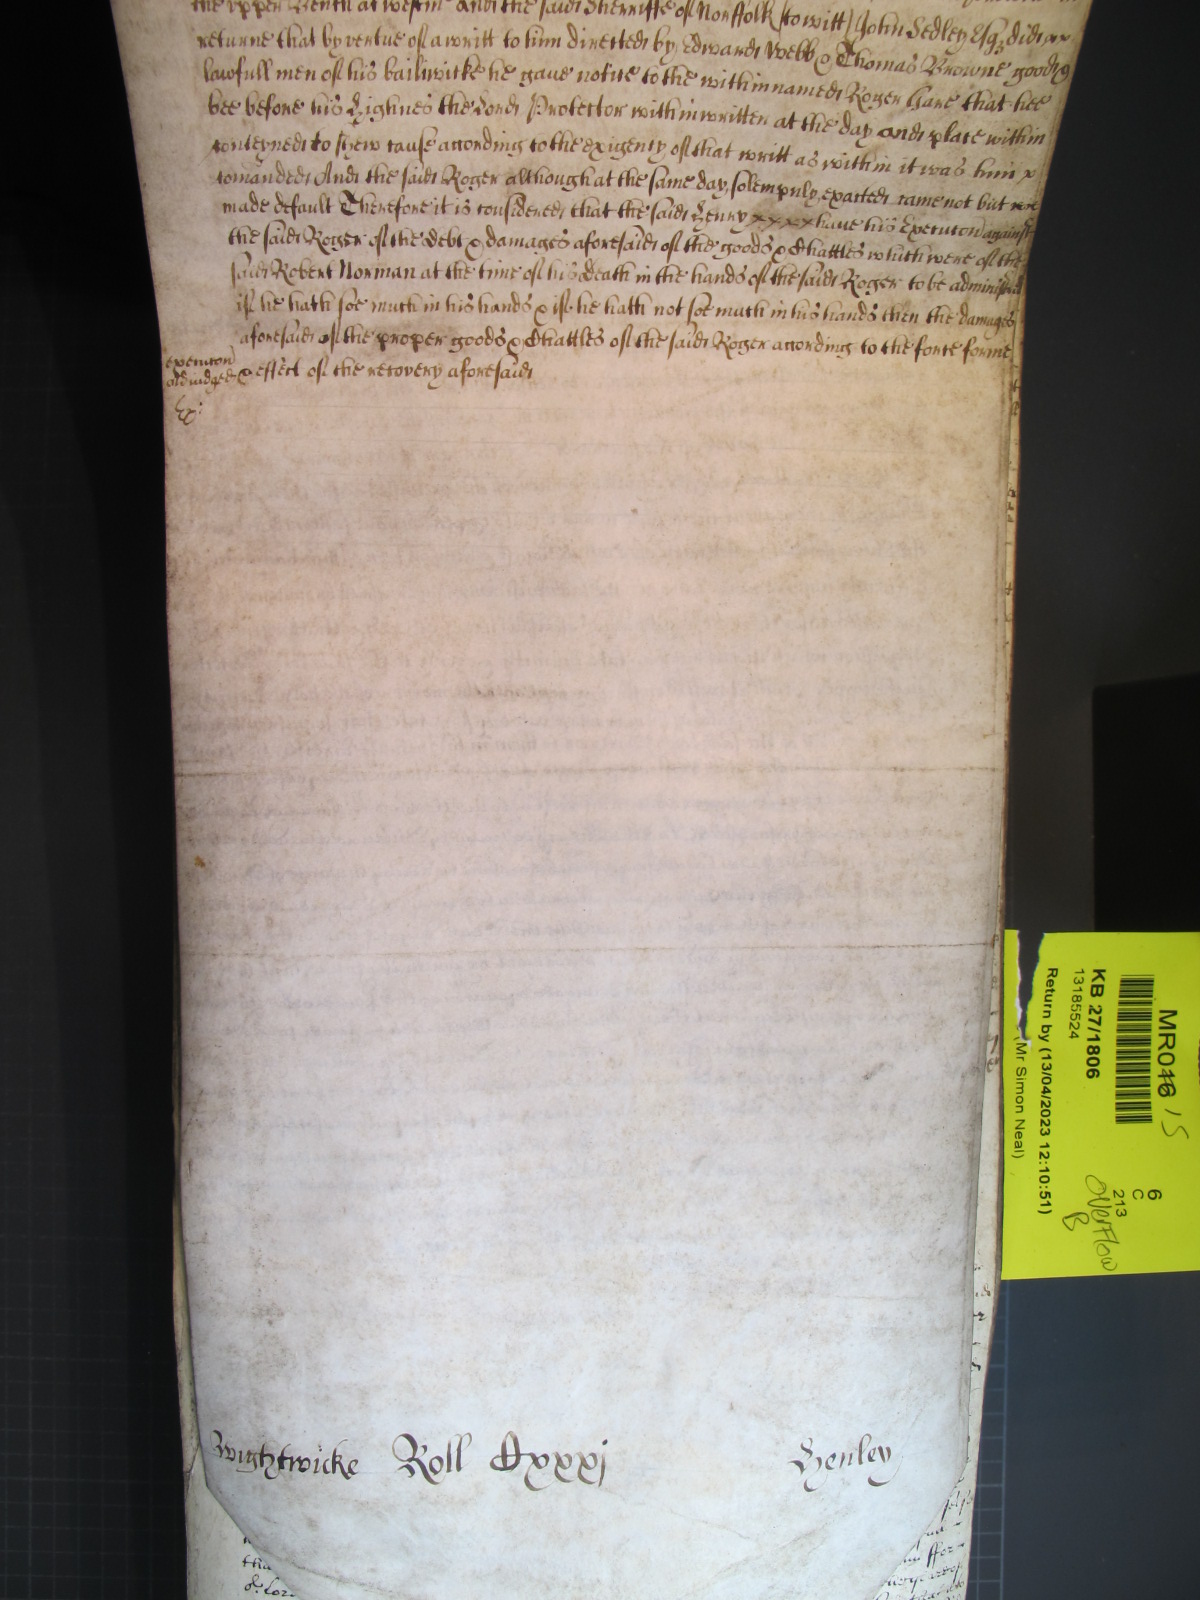 the vpper Bench at westm̃ And the said Sherriffe of Norffolk (to witt) John Sedley Esq̃ did xx
returne that by vertue of a writt to him directed by Edward Webb & Thomas Browne good &
lawfull men of his bailiwicke he gaue notice to the within named Roger Hare that hee
bee before his Highnes the Lord Protector within written at the day and place within
conteyned to shew cause according to the exigency of that writt as within it was him x
comanded And the said Roger although at the same day solempnly exacted came not but
made default Therefore it is considered that the said Henry xxxx haue his Execucon against
the said Roger of the debt & damages aforesaid of the goods & Chattles which were of the
said Robert Norman at the time of his death in the hands of the said Roger to be administred
if he hath soe much in his hands & if he hath not soe much in his hands then the damages
aforesaid of the proper goods & Chattles of the said Roger according to the force forme
execucon
adiudged & effect of the recovery aforesaid
Ex:
Wightwicke Roll Cxxxj Henley
MR016 15
KB 27/1806
13185524
Return by (13/04/2023 12:10:51)
(Mr Simon Neal)
6
C
213
OVERFLOW
B